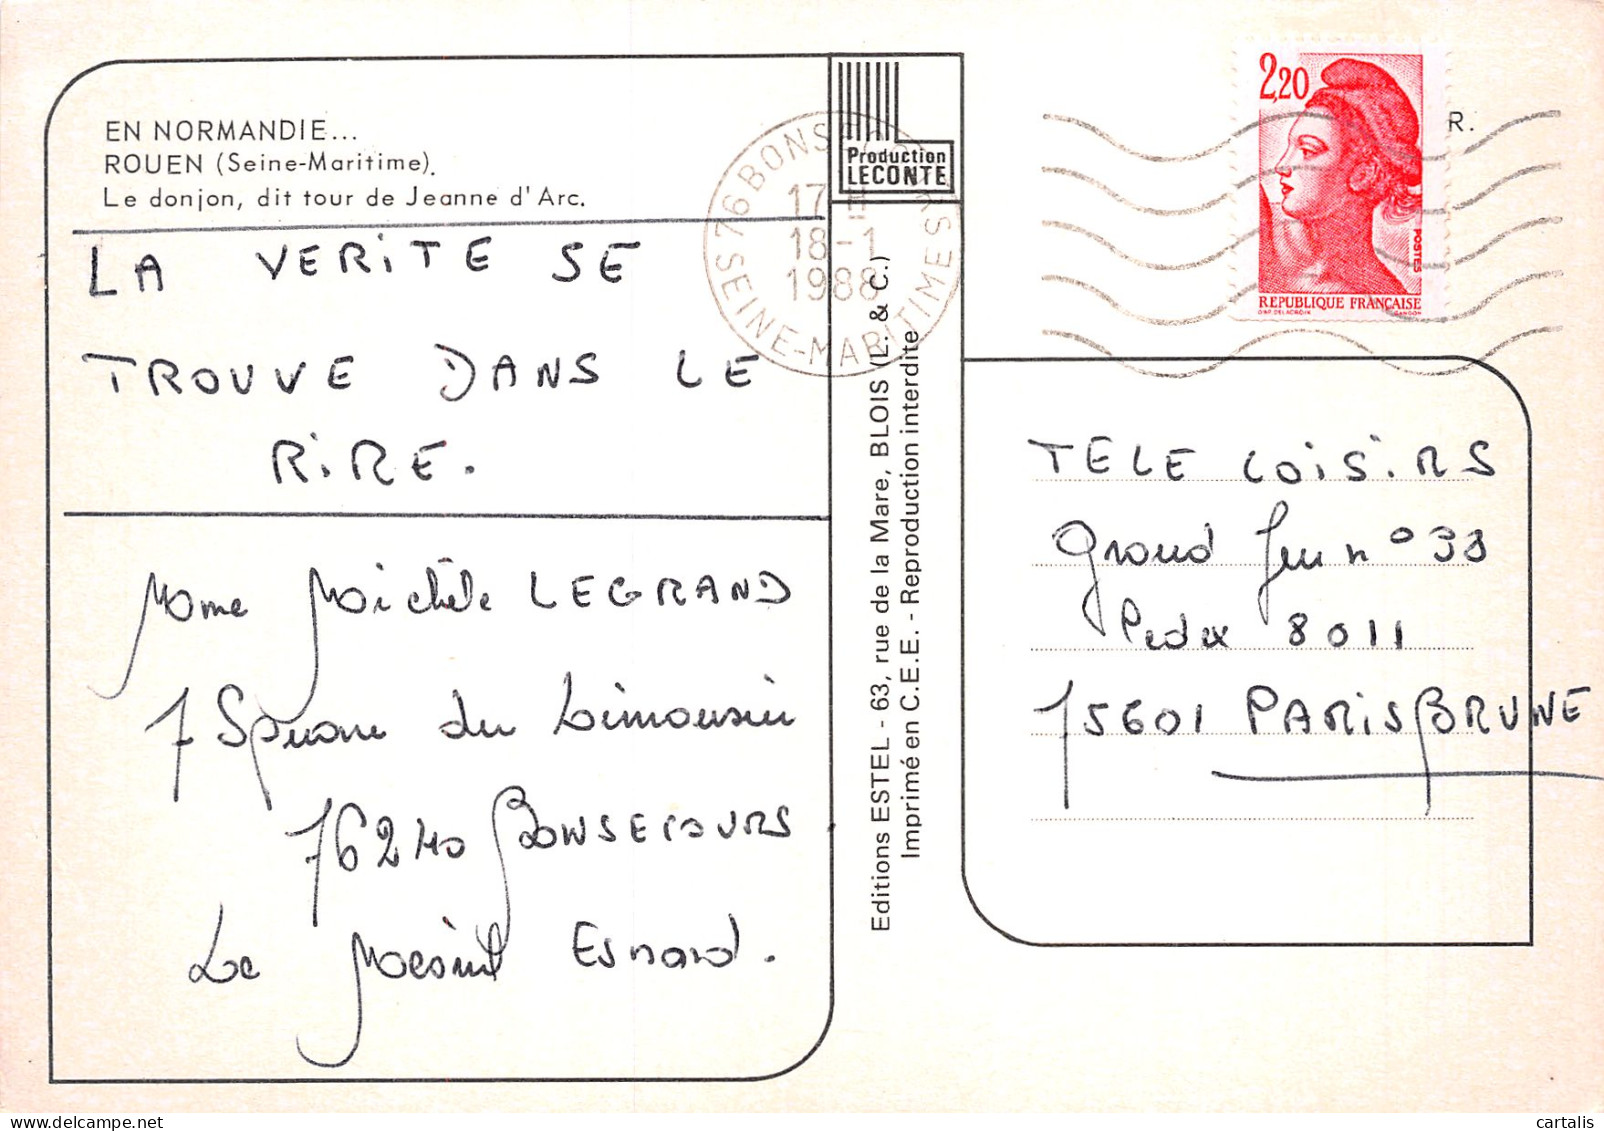 EN NORMANDIE...
ROUEN (Seine-Maritime).
Le donjon, dit tour de Jeanne d'Arc.
LA VERITE SE
TROUVE DANS LE
RIRE.
Mme Michèle LEGRAND
7 Square du Limousin
76240 BONSECOURS
Le Mesnil Esnard.
Production
LECONTE
76 BONSECOURS
17
18-1
1988
SEINE-MARITIME
Editions ESTEL - 63, rue de la Mare, BLOIS (L. & C.)
Imprimé en C.E.E. - Reproduction interdite
2,20
POSTES
REPUBLIQUE FRANÇAISE
D'AP. DELACROIX GANDON
R.
TELE LOISIRS
Grand Jeu n° 38
Cedex 8011
75601 PARIS BRUNE
cartalis